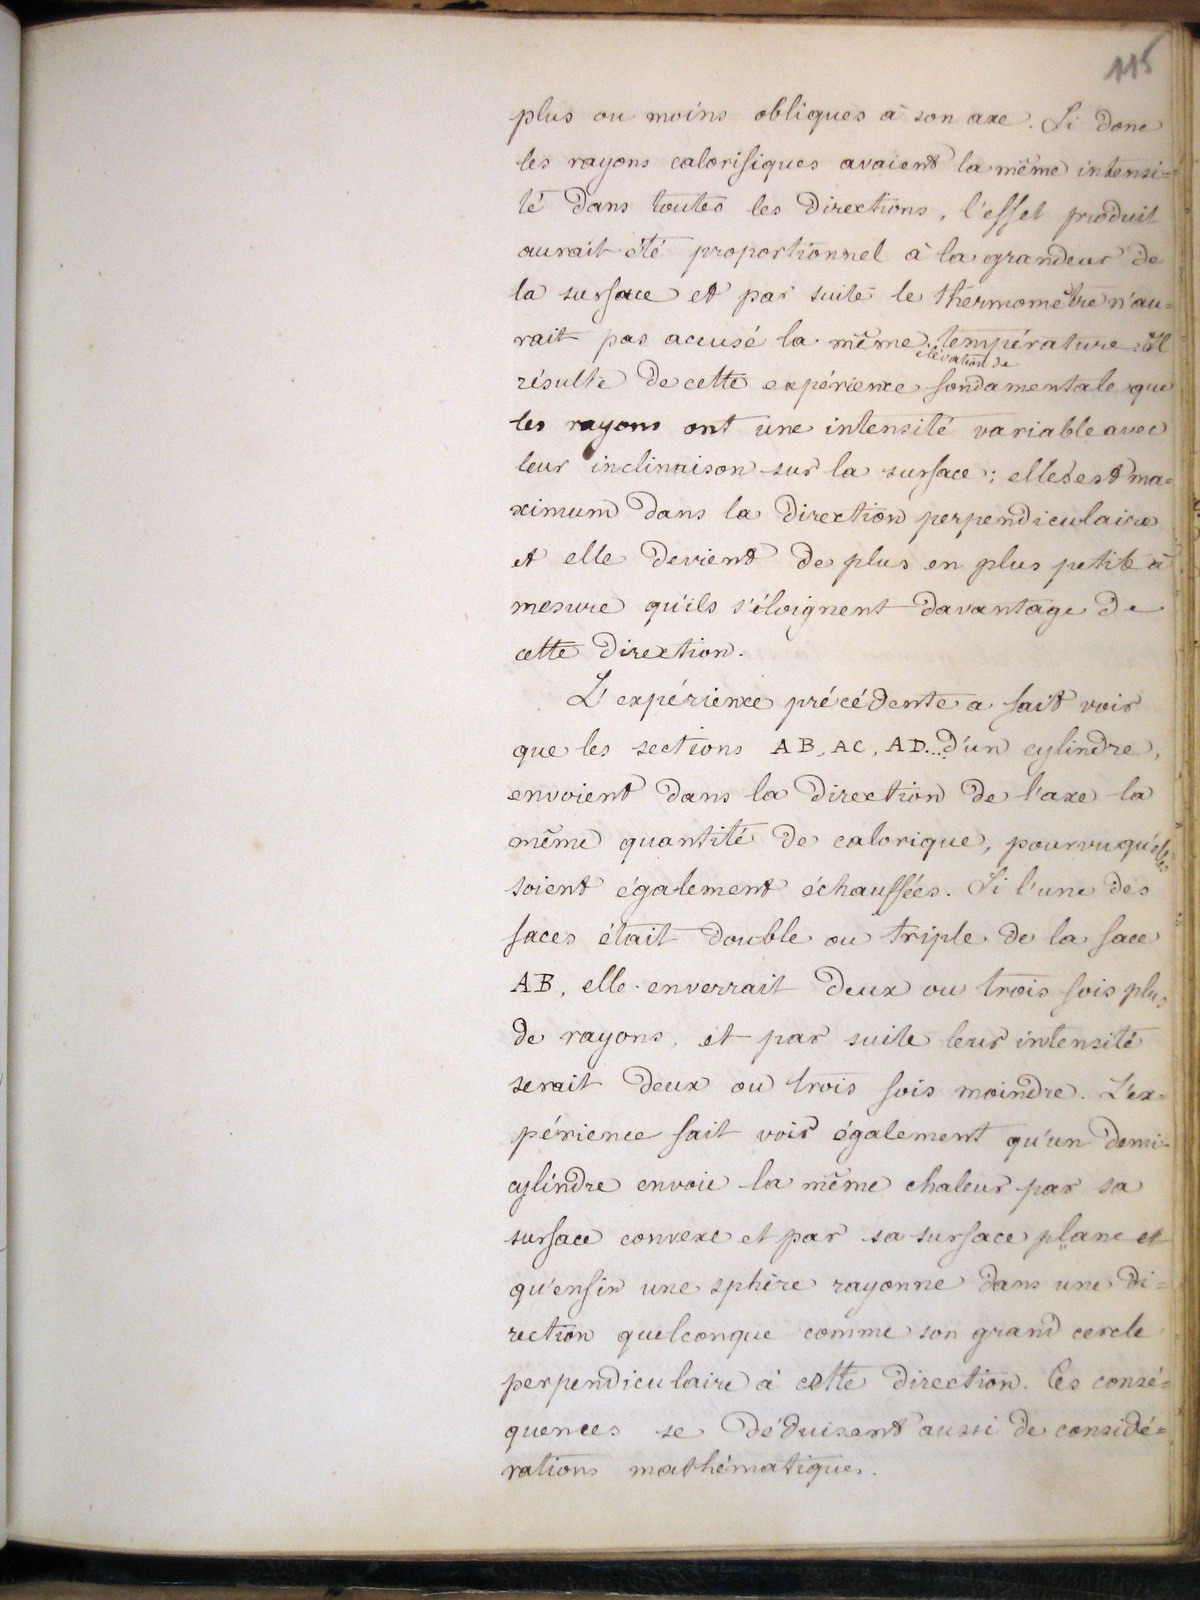 115
plus ou moins obliques à son axe. Si donc
les rayons calorifiques avaient la même intensi=
té dans toutes les directions, l'effet produit
aurait été proportionnel à la grandeur de
la surface et par suite le thermomètre n'au=
rait pas accusé la même température. Il
élévation de
résulte de cette expérience fondamentale que
les rayons ont une intensité variable avec
leur inclinaison sur la surface; elle est ma=
ximum dans la direction perpendiculaire
et elle devient de plus en plus petite à
mesure qu'ils s'éloignent davantage de
cette direction.
L'expérience précédente a fait voir
que les sections AB, AC, AD... d'un cylindre,
envoient dans la direction de l'axe la
même quantité de calorique, pourvu qu'elles
soient également échauffées. Si l'une des
faces était double ou triple de la face
AB, elle enverrait deux ou trois fois plus
de rayons, et par suite leur intensité
serait deux ou trois fois moindre. L'ex=
périence fait voir également qu'un demi-
cylindre envoie la même chaleur par sa
surface convexe et par sa surface plane et
qu'enfin une sphère rayonne dans une di=
rection quelconque comme son grand cercle
perpendiculaire à cette direction. Ces consé=
quences se déduisent aussi de considé=
rations mathématiques.